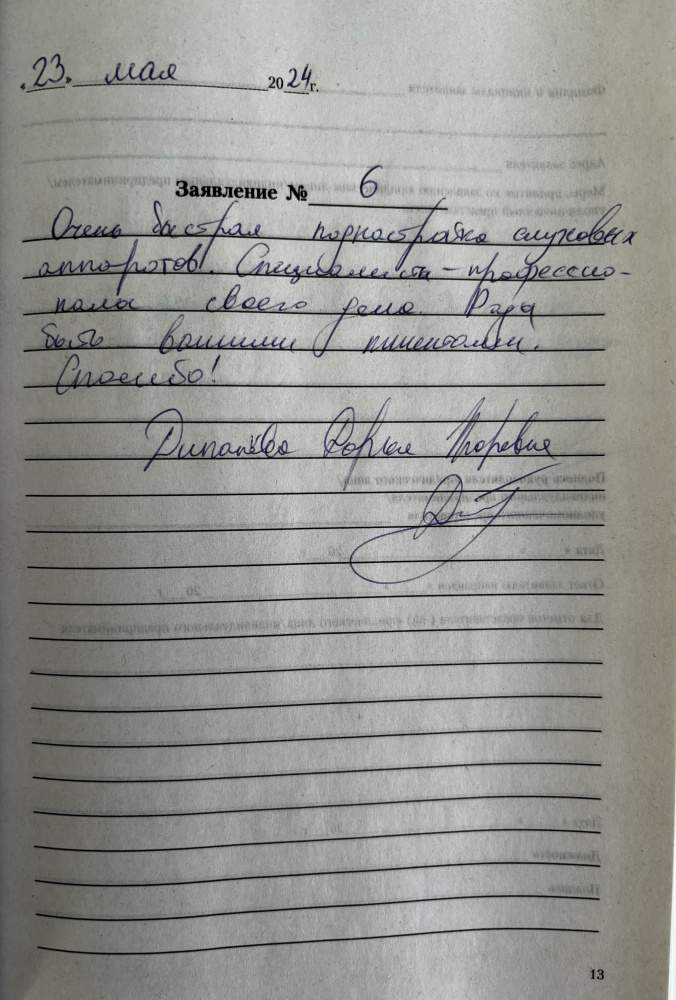 «23» мая 2024г.
Заявление № 6
Очень быстрая поднастройка слуховых
аппаратов. Специалисты - профессио-
налы своего дела. Рада
быть вашими пациентами.
Спасибо!
Дарья Игоревна
13